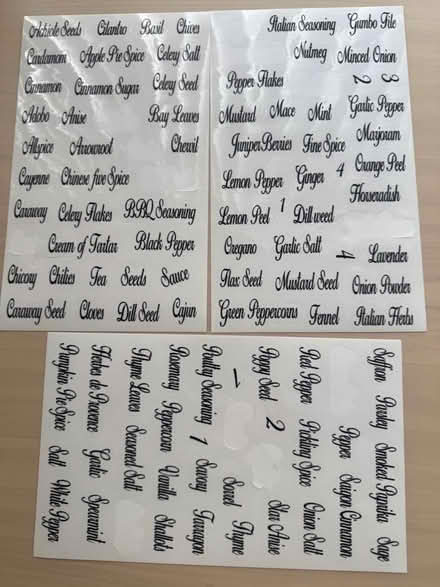 Achiote Seeds Cilantro Basil Chives
Cardamom Apple Pie Spice Celery Salt
Cinnamon Cinnamon Sugar Celery Seed
Adobo Anise Bay Leaves
Allspice Arrowroot Chervil
Cayenne Chinese five Spice
Caraway Celery Flakes BBQ Seasoning
Cream of Tartar Black Pepper
Chicory Chilies Tea Seeds Sauce
Caraway Seed Cloves Dill Seed Cajun
Italian Seasoning Gumbo File
Nutmeg Minced Onion
Pepper Flakes 2 3
Mustard Mace Mint Garlic Pepper
Juniper Berries Fine Spice Marjoram
Lemon Pepper Ginger 4 Orange Peel
Horseradish
Lemon Peel 1 Dill weed
Oregano Garlic Salt 4 Lavender
Flax Seed Mustard Seed Onion Powder
Green Peppercorns Fennel Italian Herbs
Saffron Parsley Smoked Paprika Sage
Pepper Saigon Cinnamon
Red Pepper Pickling Spice Onion Salt
Poppy Seed 2 Star Anise
1 Sorrel Thyme
Poultry Seasoning 1 Savory Tarragon
Rosemary Peppercorn Vanilla Shallots
Thyme Leaves Seasoned Salt
Herbes de Provence Garlic Spearmint
Pumpkin Pie Spice Salt White Pepper